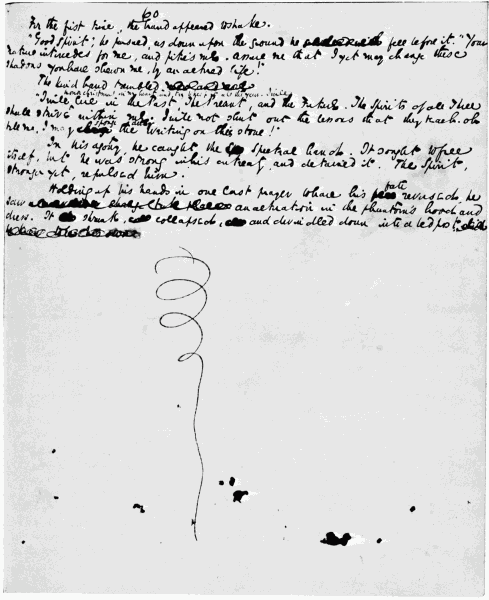 60
For the first time, the hand appeared to shake.
"Good Spirit," he pursued, as down upon the ground he fell before it. "Your
nature intercedes for me, and pities me. Assure me that I yet may change these
shadows you have shewn me, by an altered life!"
The kind hand trembled.
"I will honor Christmas in my heart, and try to keep it all the year. I will
live in the Past, the Present, and the Future. The Spirits of all Three
shall strive within me. I will not shut out the lessons that they teach. Oh
tell me, I may sponge away the writing on this stone!"
In his agony, he caught the spectral hand. It sought to free
itself, but he was strong in his entreaty, and detained it. The Spirit,
stronger yet, repulsed him.
Holding up his hands in one last prayer to have his fate reversed, he
saw an alteration in the phantom's hood and
dress. It shrunk, collapsed, and dwindled down into a bedpost.